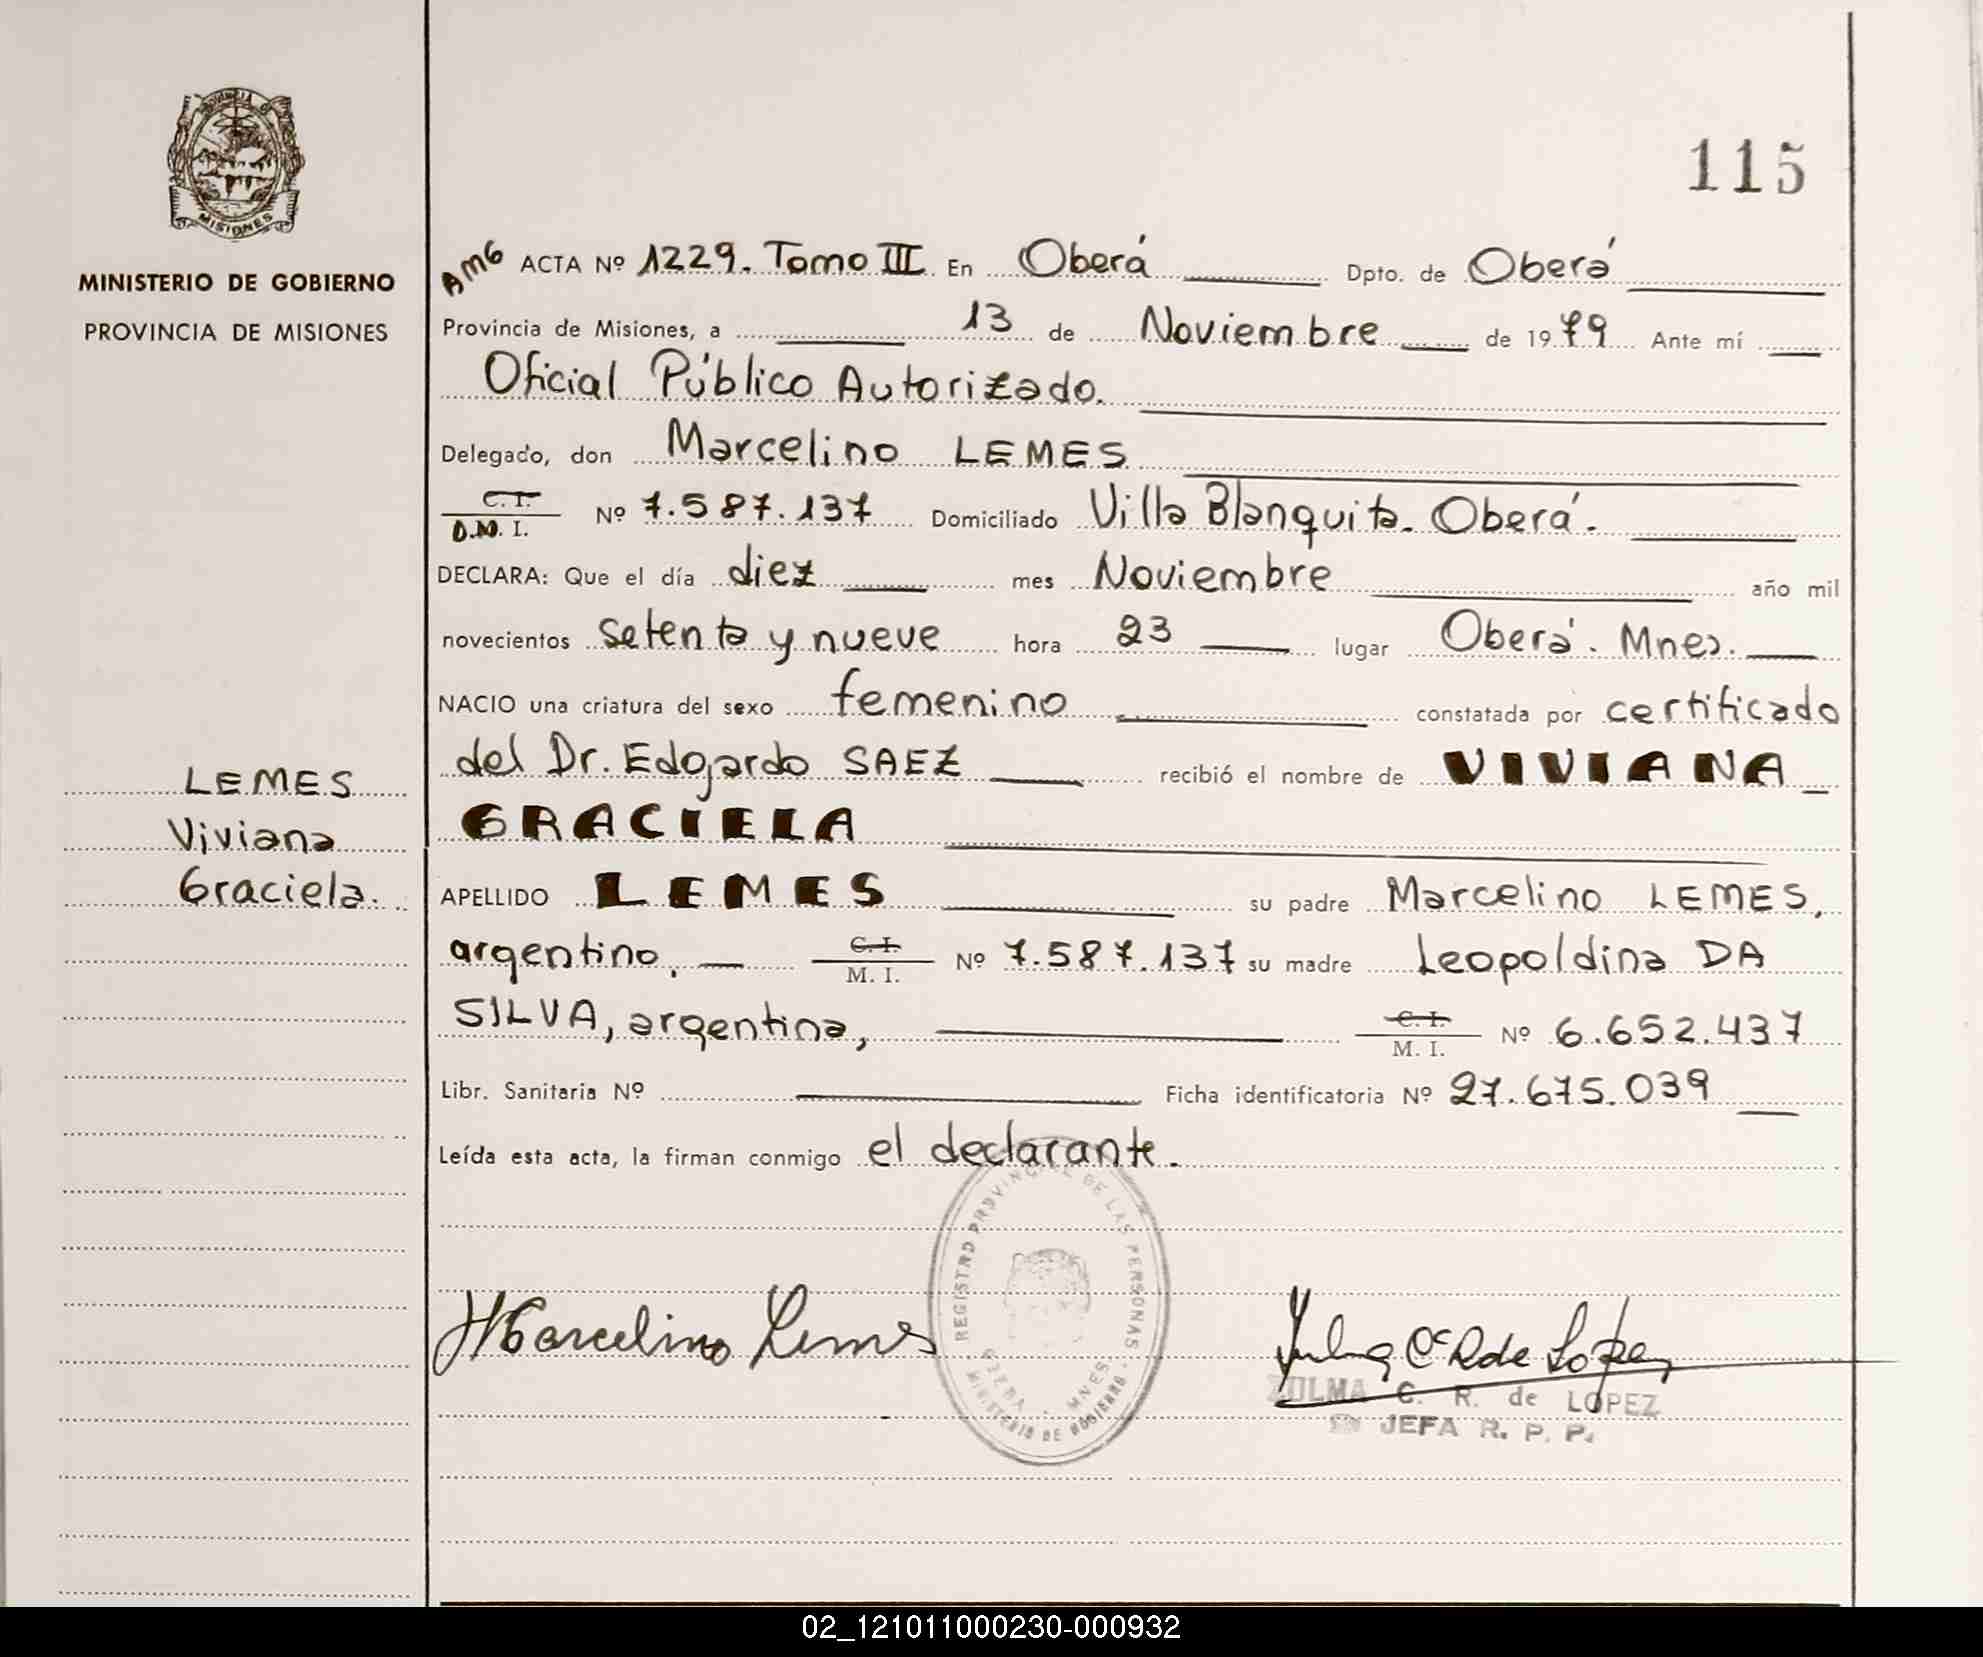 PROVINCIA DE
MISIONES
MINISTERIO DE GOBIERNO
PROVINCIA DE MISIONES
LEMES
Viviana
Graciela.
115
AMG ACTA Nº 1229. Tomo III En Oberá Dpto. de Oberá
Provincia de Misiones, a 13 de Noviembre de 1979 Ante mí
Oficial Público Autorizado.
Delegado, don Marcelino LEMES
C. I.
D.N. I. Nº 7.587.137 Domiciliado Villa Blanquita. Oberá.
DECLARA: Que el día diez mes Noviembre año mil
novecientos setenta y nueve hora 23 lugar Oberá. Mnes.
NACIO una criatura del sexo femenino constatada por certificado
del Dr. Edgardo SAEZ recibió el nombre de VIVIANA
GRACIELA
APELLIDO LEMES su padre Marcelino LEMES,
argentino, C. I. M. I. Nº 7.587.137 su madre Leopoldina DA
SILVA, argentina, C. I. M. I. Nº 6.652.437
Libr. Sanitaria Nº Ficha identificatoria Nº 27.675.039
Leída esta acta, la firman conmigo el declarante.
REGISTRO PROVINCIAL DE LAS PERSONAS
OBERA - MNES.
MINISTERIO DE GOBIERNO
Marcelino Lemes
Zulma C R de Lopez
ZULMA C. R. de LOPEZ
JEFA R. P. P.
02_121011000230-000932